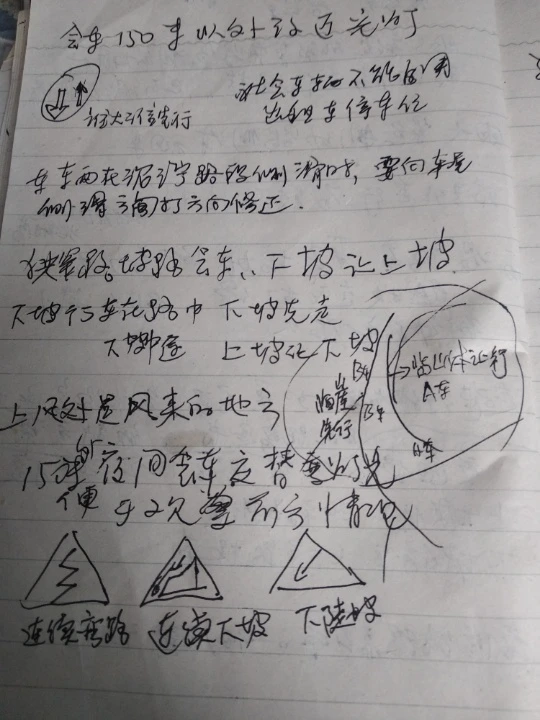 会车150米以外改近光灯
社会车辆不能占用
出租车停车位
车辆在泥泞路段侧滑时，要向车尾
侧滑方向打方向修正．
狭窄路坡路会车：下坡让上坡
下坡行车在路中 下坡先走
下坡中途 上坡让下坡
上风处是风来的地方
150米外夜间会车交替变灯光
便 观察前方情况
临崖
先行
B车
B车
靠山体让行
A车
A车
连续弯路
连续下坡
下陡坡